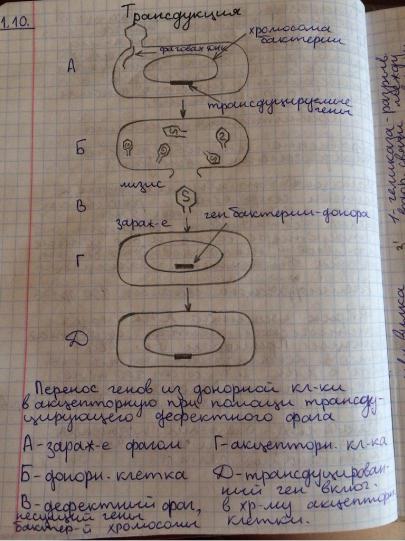 1.10.
Трансдукция
хромосома
бактерии
фаговая днк
А
трансдуцируемые
гены
Б
лизис
В
зараж-е
ген бактерии-донора
Г
Д
Перенос генов из донорной кл-ки
в акцепторную при помощи трансду-
цирующего дефектного фага
А-зараж-е фагом
Б-донорн. клетка
В-дефектный фаг,
несущий гены
бактер-й хромосомы
Г-акцепторн. кл-ка
Д-трансдуцирован-
ный ген включ.
в хр-му акцепторн
клетки.
1. геликаза-разрыв